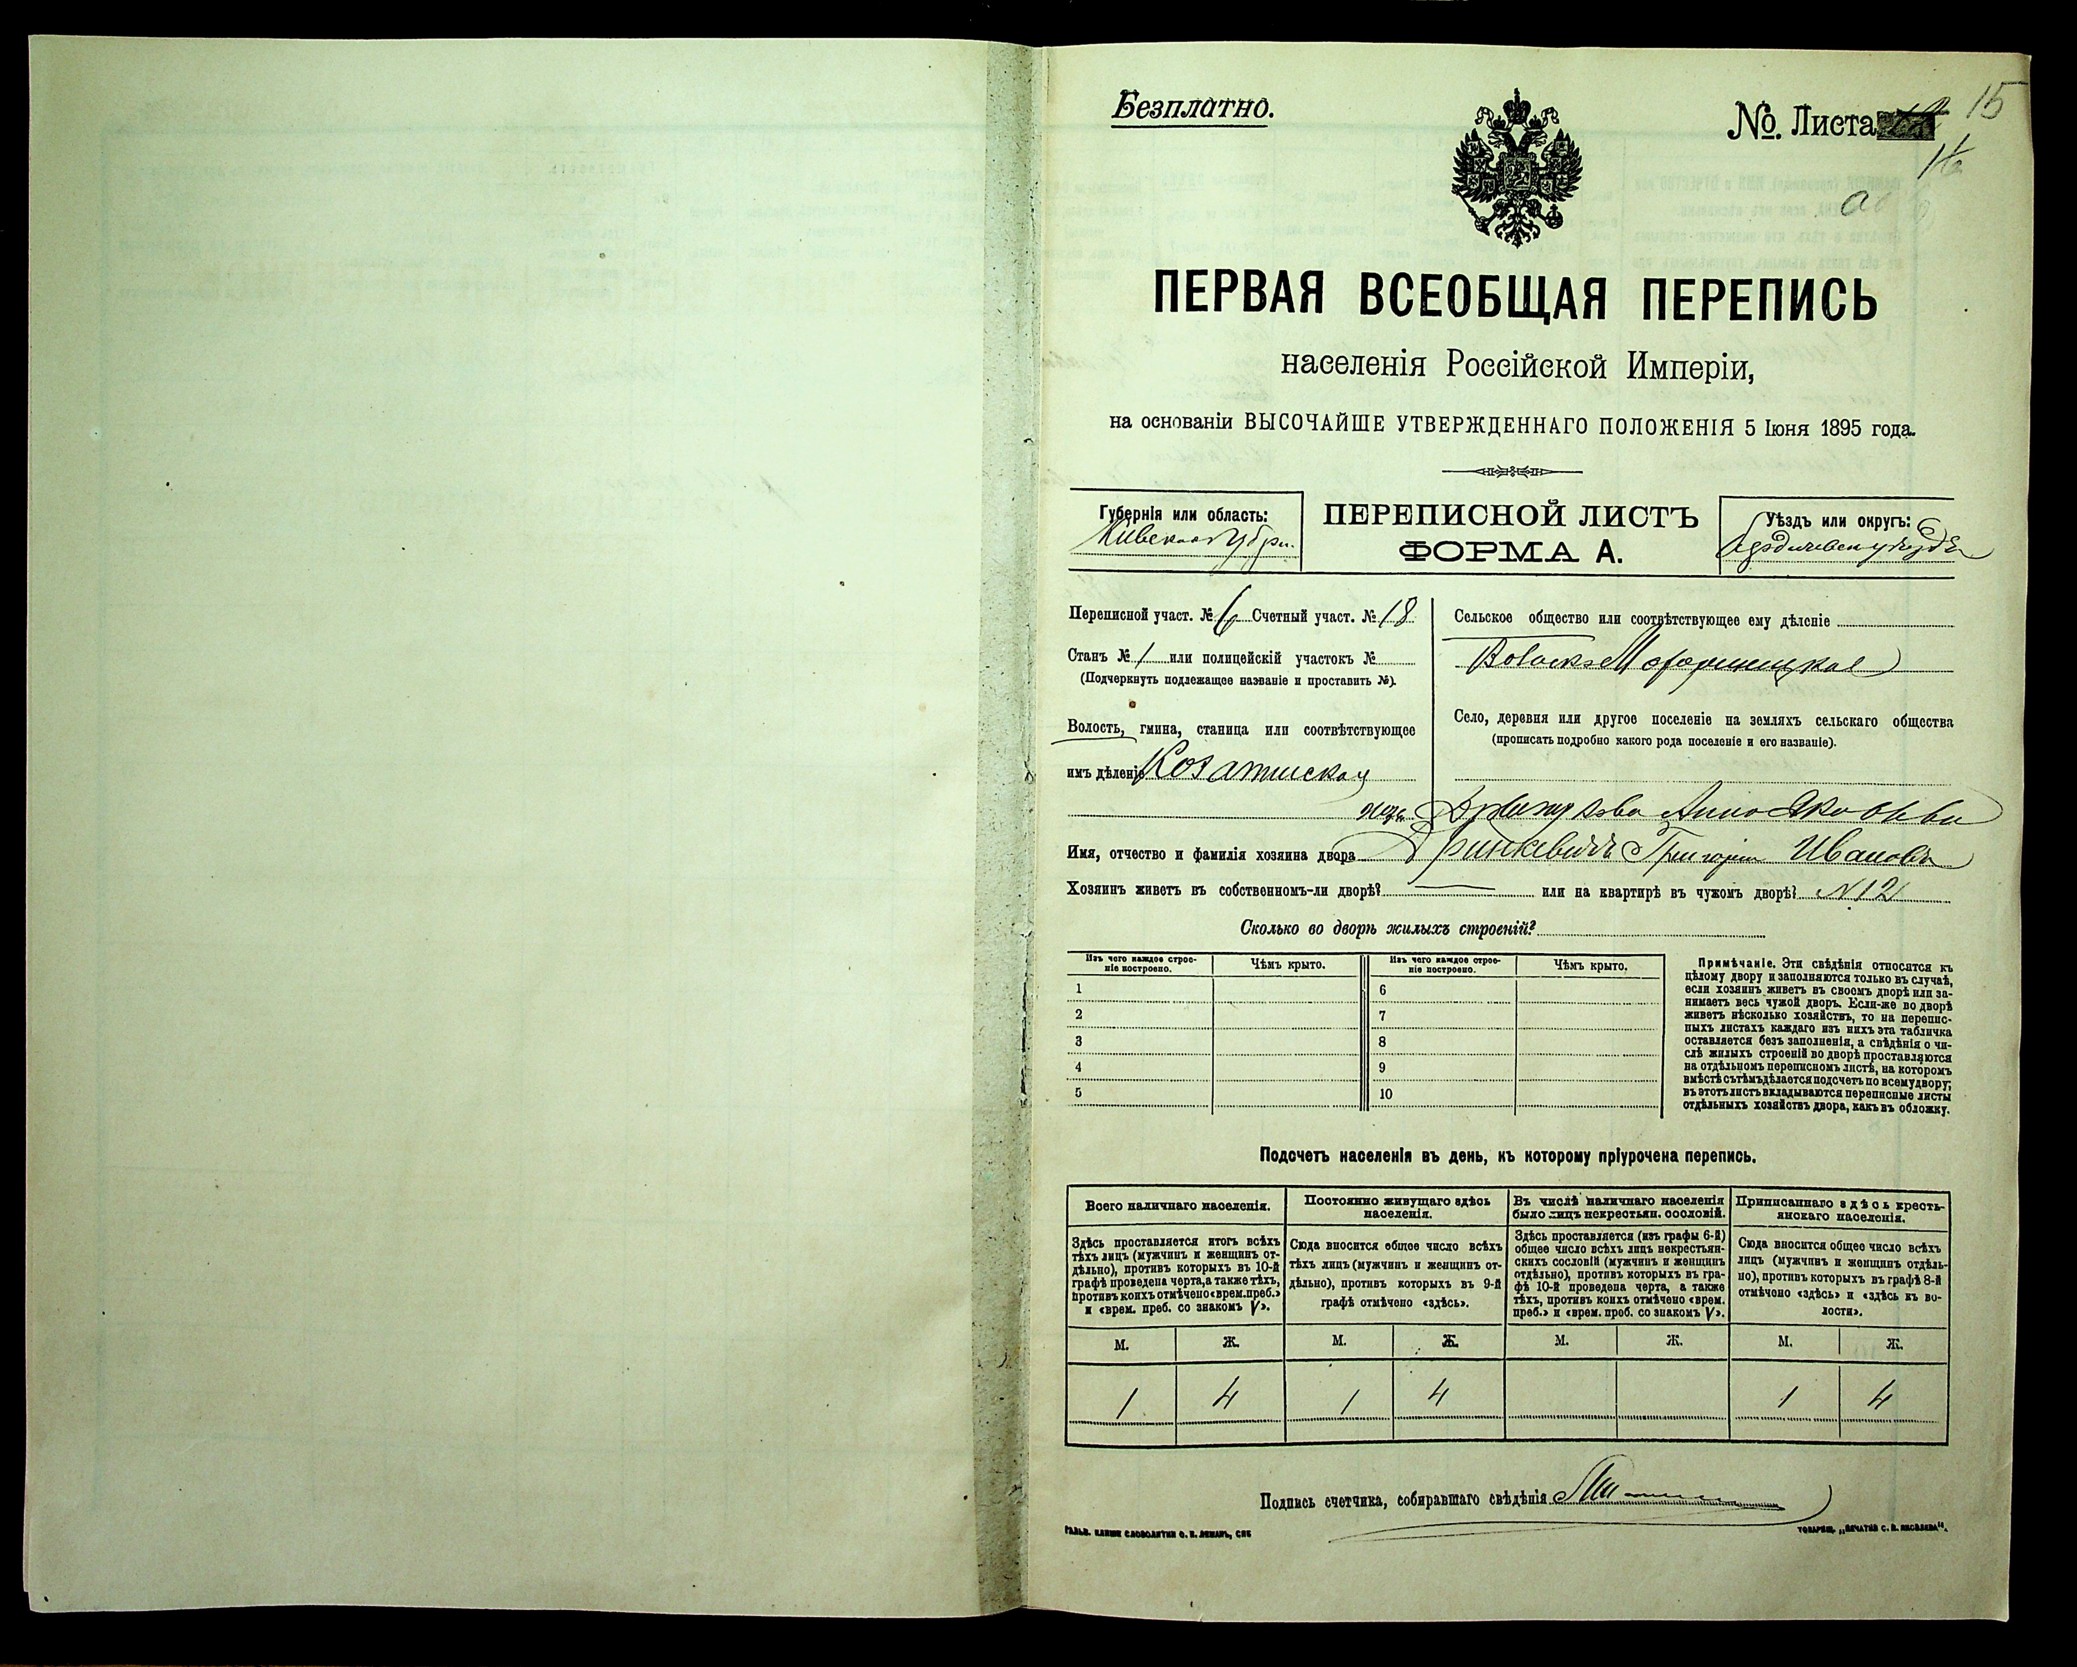 Безплатно.
№. Листа 15
ПЕРВАЯ ВСЕОБЩАЯ ПЕРЕПИСЬ
населенія Россійской Имперіи,
на основаніи ВЫСОЧАЙШЕ УТВЕРЖДЕННАГО ПОЛОЖЕНІЯ 5 Іюня 1895 года.
Губернія или область:
Кіевская губерн.
ПЕРЕПИСНОЙ ЛИСТЪ
ФОРМА А.
Уѣздъ или округъ:
Бердичевск уѣздъ
6
Переписной участ. № 6 Счетный участ. № 18
Станъ № 1 или полицейскій участокъ №
(Подчеркнуть подлежащее названіе и проставить №).
Волость, гмина, станица или соотвѣтствующее
имъ дѣленіе Козатинская
Сельское общество или соотвѣтствующее ему дѣленіе
Село, деревня или другое поселеніе на земляхъ сельскаго общества
(прописать подробно какого рода поселеніе и его названіе).
Имя, отчество и фамилія хозяина двора Григорій Ивановъ
Хозяинъ живетъ въ собственномъ-ли дворѣ? — или на квартирѣ въ чужомъ дворѣ? №12
Сколько во дворѣ жилыхъ строеній?
Изъ чего каждое строе-
ніе построено.
Чѣмъ крыто.
Изъ чего каждое строе-
ніе построено.
Чѣмъ крыто.
1 6
2 7
3 8
4 9
5 10
Примѣчаніе. Эти свѣдѣнія относятся къ
цѣлому двору и заполняются только въ случаѣ,
если хозяинъ живетъ въ своемъ дворѣ или за-
нимаетъ весь чужой дворъ. Если-же во дворѣ
живетъ нѣсколько хозяйствъ, то на перепис-
ныхъ листахъ каждаго изъ нихъ эта табличка
оставляется безъ заполненія, а свѣдѣнія о чи-
слѣ жилыхъ строеній во дворѣ проставляются
на отдѣльномъ переписномъ листѣ, на которомъ
вмѣстѣ съ тѣмъ дѣлается подсчетъ по всему двору;
въ этотъ листъ вкладываются переписные листы
отдѣльныхъ хозяйствъ двора, какъ въ обложку.
Подсчетъ населенія въ день, къ которому пріурочена перепись.
Всего наличнаго населенія.
Здѣсь проставляется итогъ всѣхъ
тѣхъ лицъ (мужчинъ и женщинъ от-
дѣльно), противъ которыхъ въ 10-й
графѣ проведена черта, а также тѣхъ,
противъ коихъ отмѣчено «врем. преб.»
и «врем. преб. со знакомъ V».
Постоянно живущаго здѣсь
населенія.
Сюда вносится общее число всѣхъ
тѣхъ лицъ (мужчинъ и женщинъ от-
дѣльно), противъ которыхъ въ 9-й
графѣ отмѣчено «здѣсь».
Въ числѣ наличнаго населенія
было лицъ некрестьян. сословій.
Здѣсь проставляется (изъ графы 6-й)
общее число всѣхъ лицъ некрестьян-
скихъ сословій (мужчинъ и женщинъ
отдѣльно), противъ которыхъ въ гра-
фѣ 10-й проведена черта, а также
тѣхъ, противъ коихъ отмѣчено «врем.
преб.» и «врем. преб. со знакомъ V».
Приписаннаго здѣсь кресть-
янскаго населенія.
Сюда вносится общее число всѣхъ
лицъ (мужчинъ и женщинъ отдѣль-
но), противъ которыхъ въ графѣ 8-й
отмѣчено «здѣсь» и «здѣсь къ во-
лости».
М. Ж. М. Ж. М. Ж. М. Ж.
1 4 1 4 1 4
Подпись счетчика, собиравшаго свѣдѣнія
ГАЛЬВ. КЛИШЕ СЛОВОЛИТНИ О. И. ЛЕМАНЪ, СПБ
ТОВАРИЩ. „ПЕЧАТНЯ С. П. ЯКОВЛЕВА“.